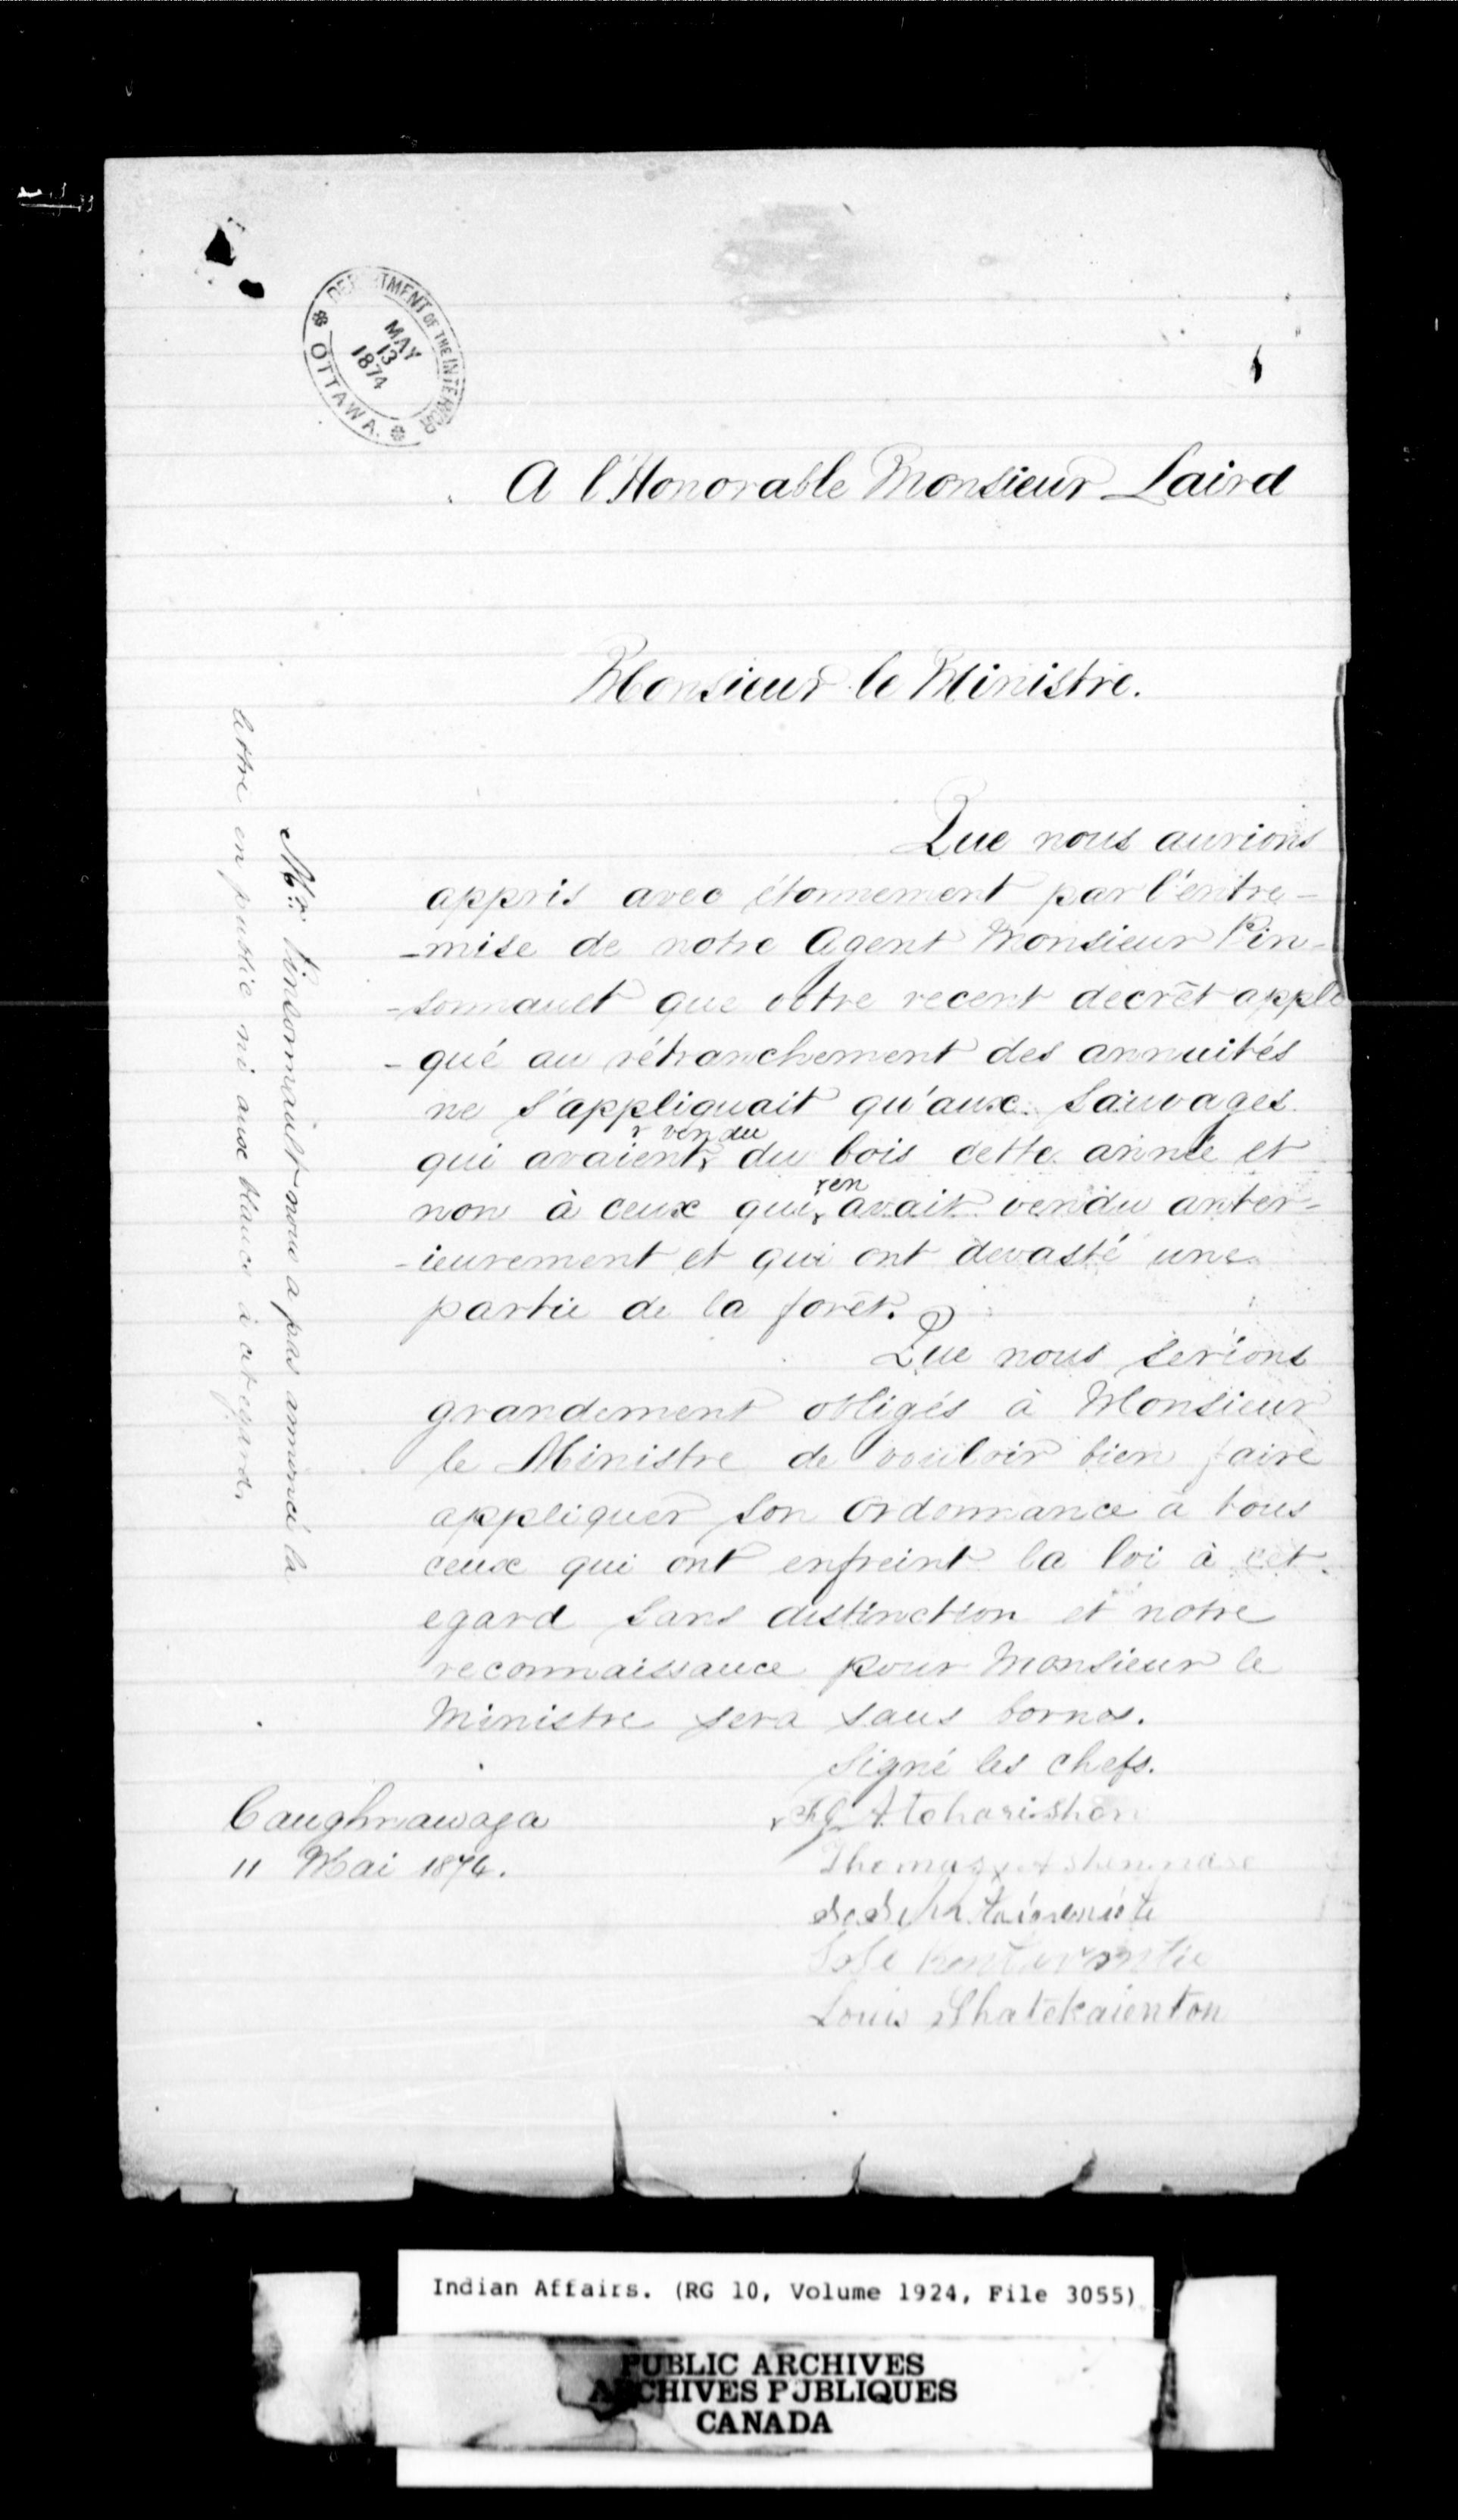 DEPARTMENT OF THE INTERIOR
MAY
13
1874
OTTAWA.
A l'Honorable Monsieur Laird
Monsieur le Ministre.
Que nous aurions
appris avec étonnement par l'entre-
-mise de notre Agent Monsieur Pin-
-sonnault que votre recent décrêt appli
-qué au rétranchement des annuités
ne s'appliquait qu'aux Sauvages
qui avaient vendu du bois cette année et
non à ceux qui en avait vendu anter-
-ieurement et qui ont devasté une
partie de la forêt.
Que nous serions
grandement obligés à Monsieur
le Ministre de vouloir bien faire
appliquer son Ordonnance à tous
ceux qui ont enfreint la loi à cet
egard sans distinction et notre
reconnaissance pour Monsieur le
Ministre sera sans bornes.
signé les chefs.
Caughnawaga
11 Mai 1874.
Thomas
Sose
Louis Shatekaienton
Mr. Pinsonnault nous a pas annoncé la
lettre en public ni aux blancs à cet egard.
Indian Affairs. (RG 10, Volume 1924, File 3055)
PUBLIC ARCHIVES
ARCHIVES PUBLIQUES
CANADA